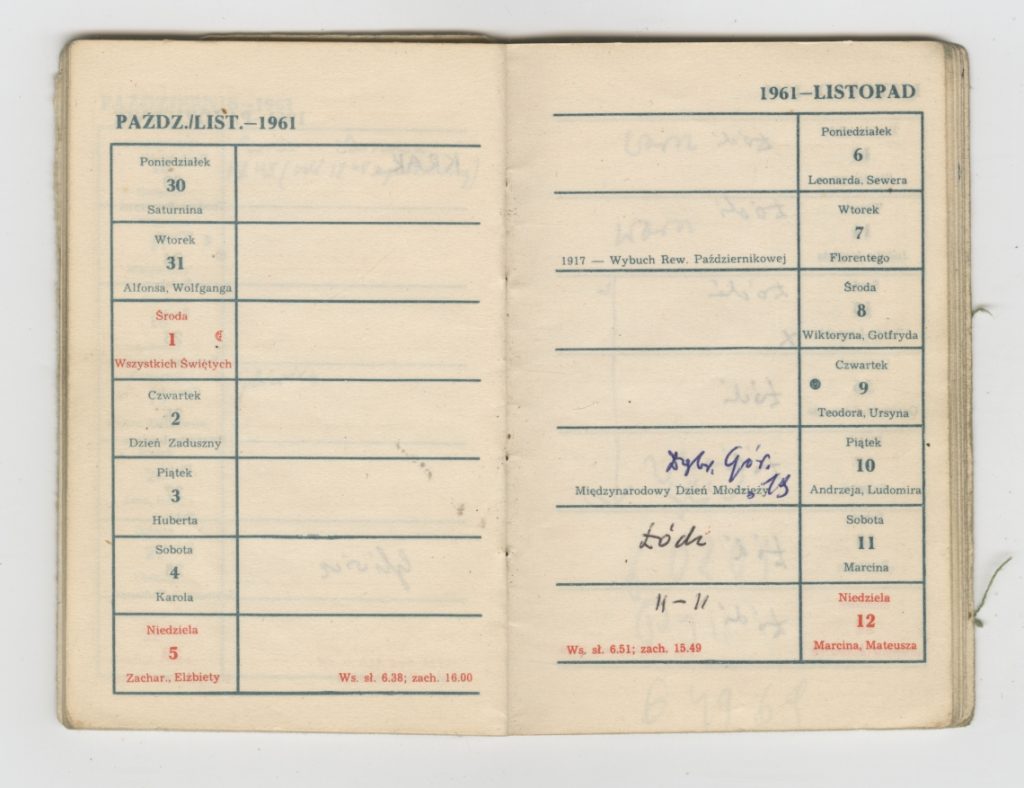 PAŹDZ./LIST.—1961
Poniedziałek
30
Saturnina
Wtorek
31
Alfonsa, Wolfganga
Środa
1
Wszystkich Świętych
Czwartek
2
Dzień Zaduszny
Piątek
3
Huberta
Sobota
4
Karola
Niedziela
5
Zachar., Elżbiety
Ws. sł. 6.38; zach. 16.00
1961—LISTOPAD
Poniedziałek
6
Leonarda, Sewera
Wtorek
7
1917 — Wybuch Rew. Październikowej
Florentego
Środa
8
Wiktoryna, Gotfryda
Czwartek
9
Teodora, Ursyna
Dąbr. Gór.
19
Piątek
10
Międzynarodowy Dzień Młodzieży
Andrzeja, Ludomira
Łódź
Sobota
11
Marcina
11 – 11
Niedziela
12
Ws. sł. 6.51; zach. 15.49
Marcina, Mateusza